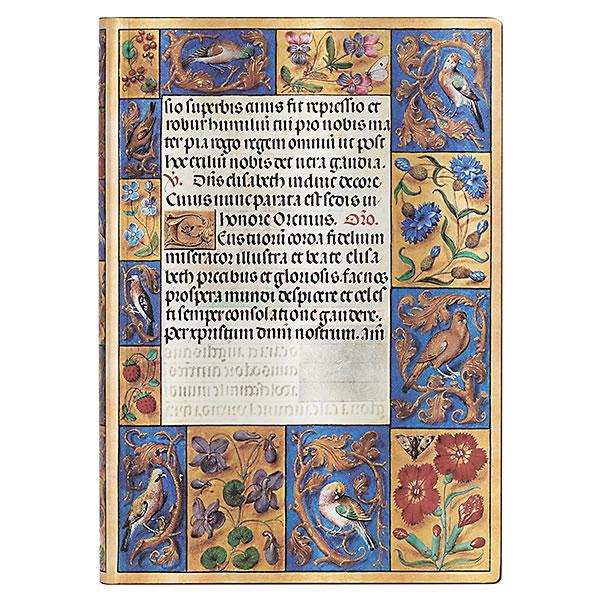 sio superbis cuius fit repressio et
robur humiliũ cui pro nobis ma
ter pia rogo regem omniũ ut post
hoc exiliũ nobis det uera gaudia.
V. Dñs elisabeth induit decore.
Cuius nunc parata est sedis in
honore Orcimus. Oro.
Deus tuorũ corda fidelium
miserator illustra et beate elisa
beth precibus et gloriosis. fac nos
prospera mundi despicere et celes
ti semper consolatione gaudere.
Per xpristum dñm nostrum. am̃